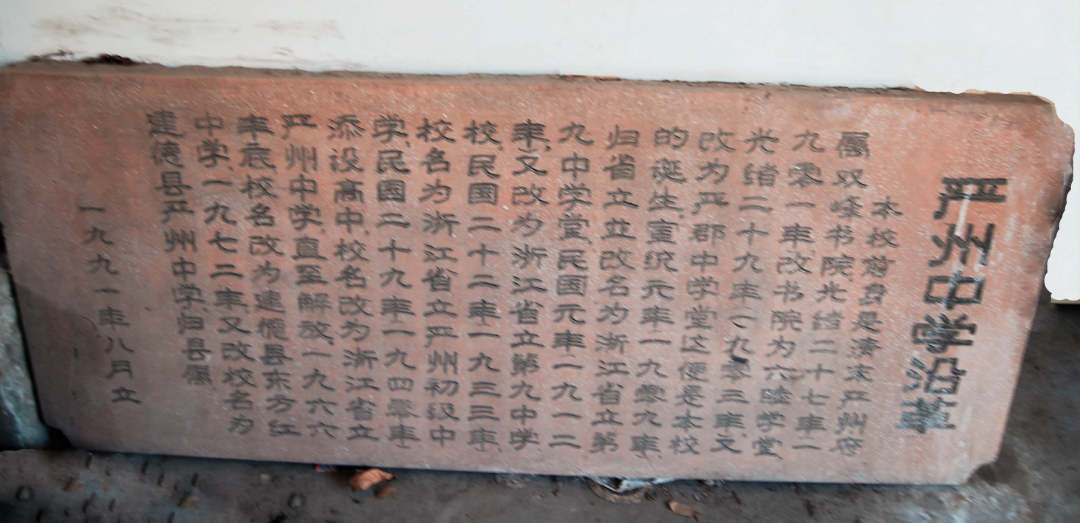 严州中学沿革
本校前身是清末严州府
属双峰书院光绪二十七年一
九零一年改书院为六睦学堂
光绪二十九年一九零三年又
改为严郡中学堂这便是本校
的诞生,宣统元年一九零九年
归省立並改名为浙江省立第
九中学堂,民国元年一九一二
年,又改为浙江省立第九中学
校,民国二十二年一九三三年,
校名为浙江省立严州初级中
学,民国二十九年一九四零年
添设高中,校名改为浙江省立
严州中学,直至解放,一九六六
年底校名改为建德县东方红
中学,一九七二年,又改校名为
建德县严州中学,归县属,
一九九一年八月立